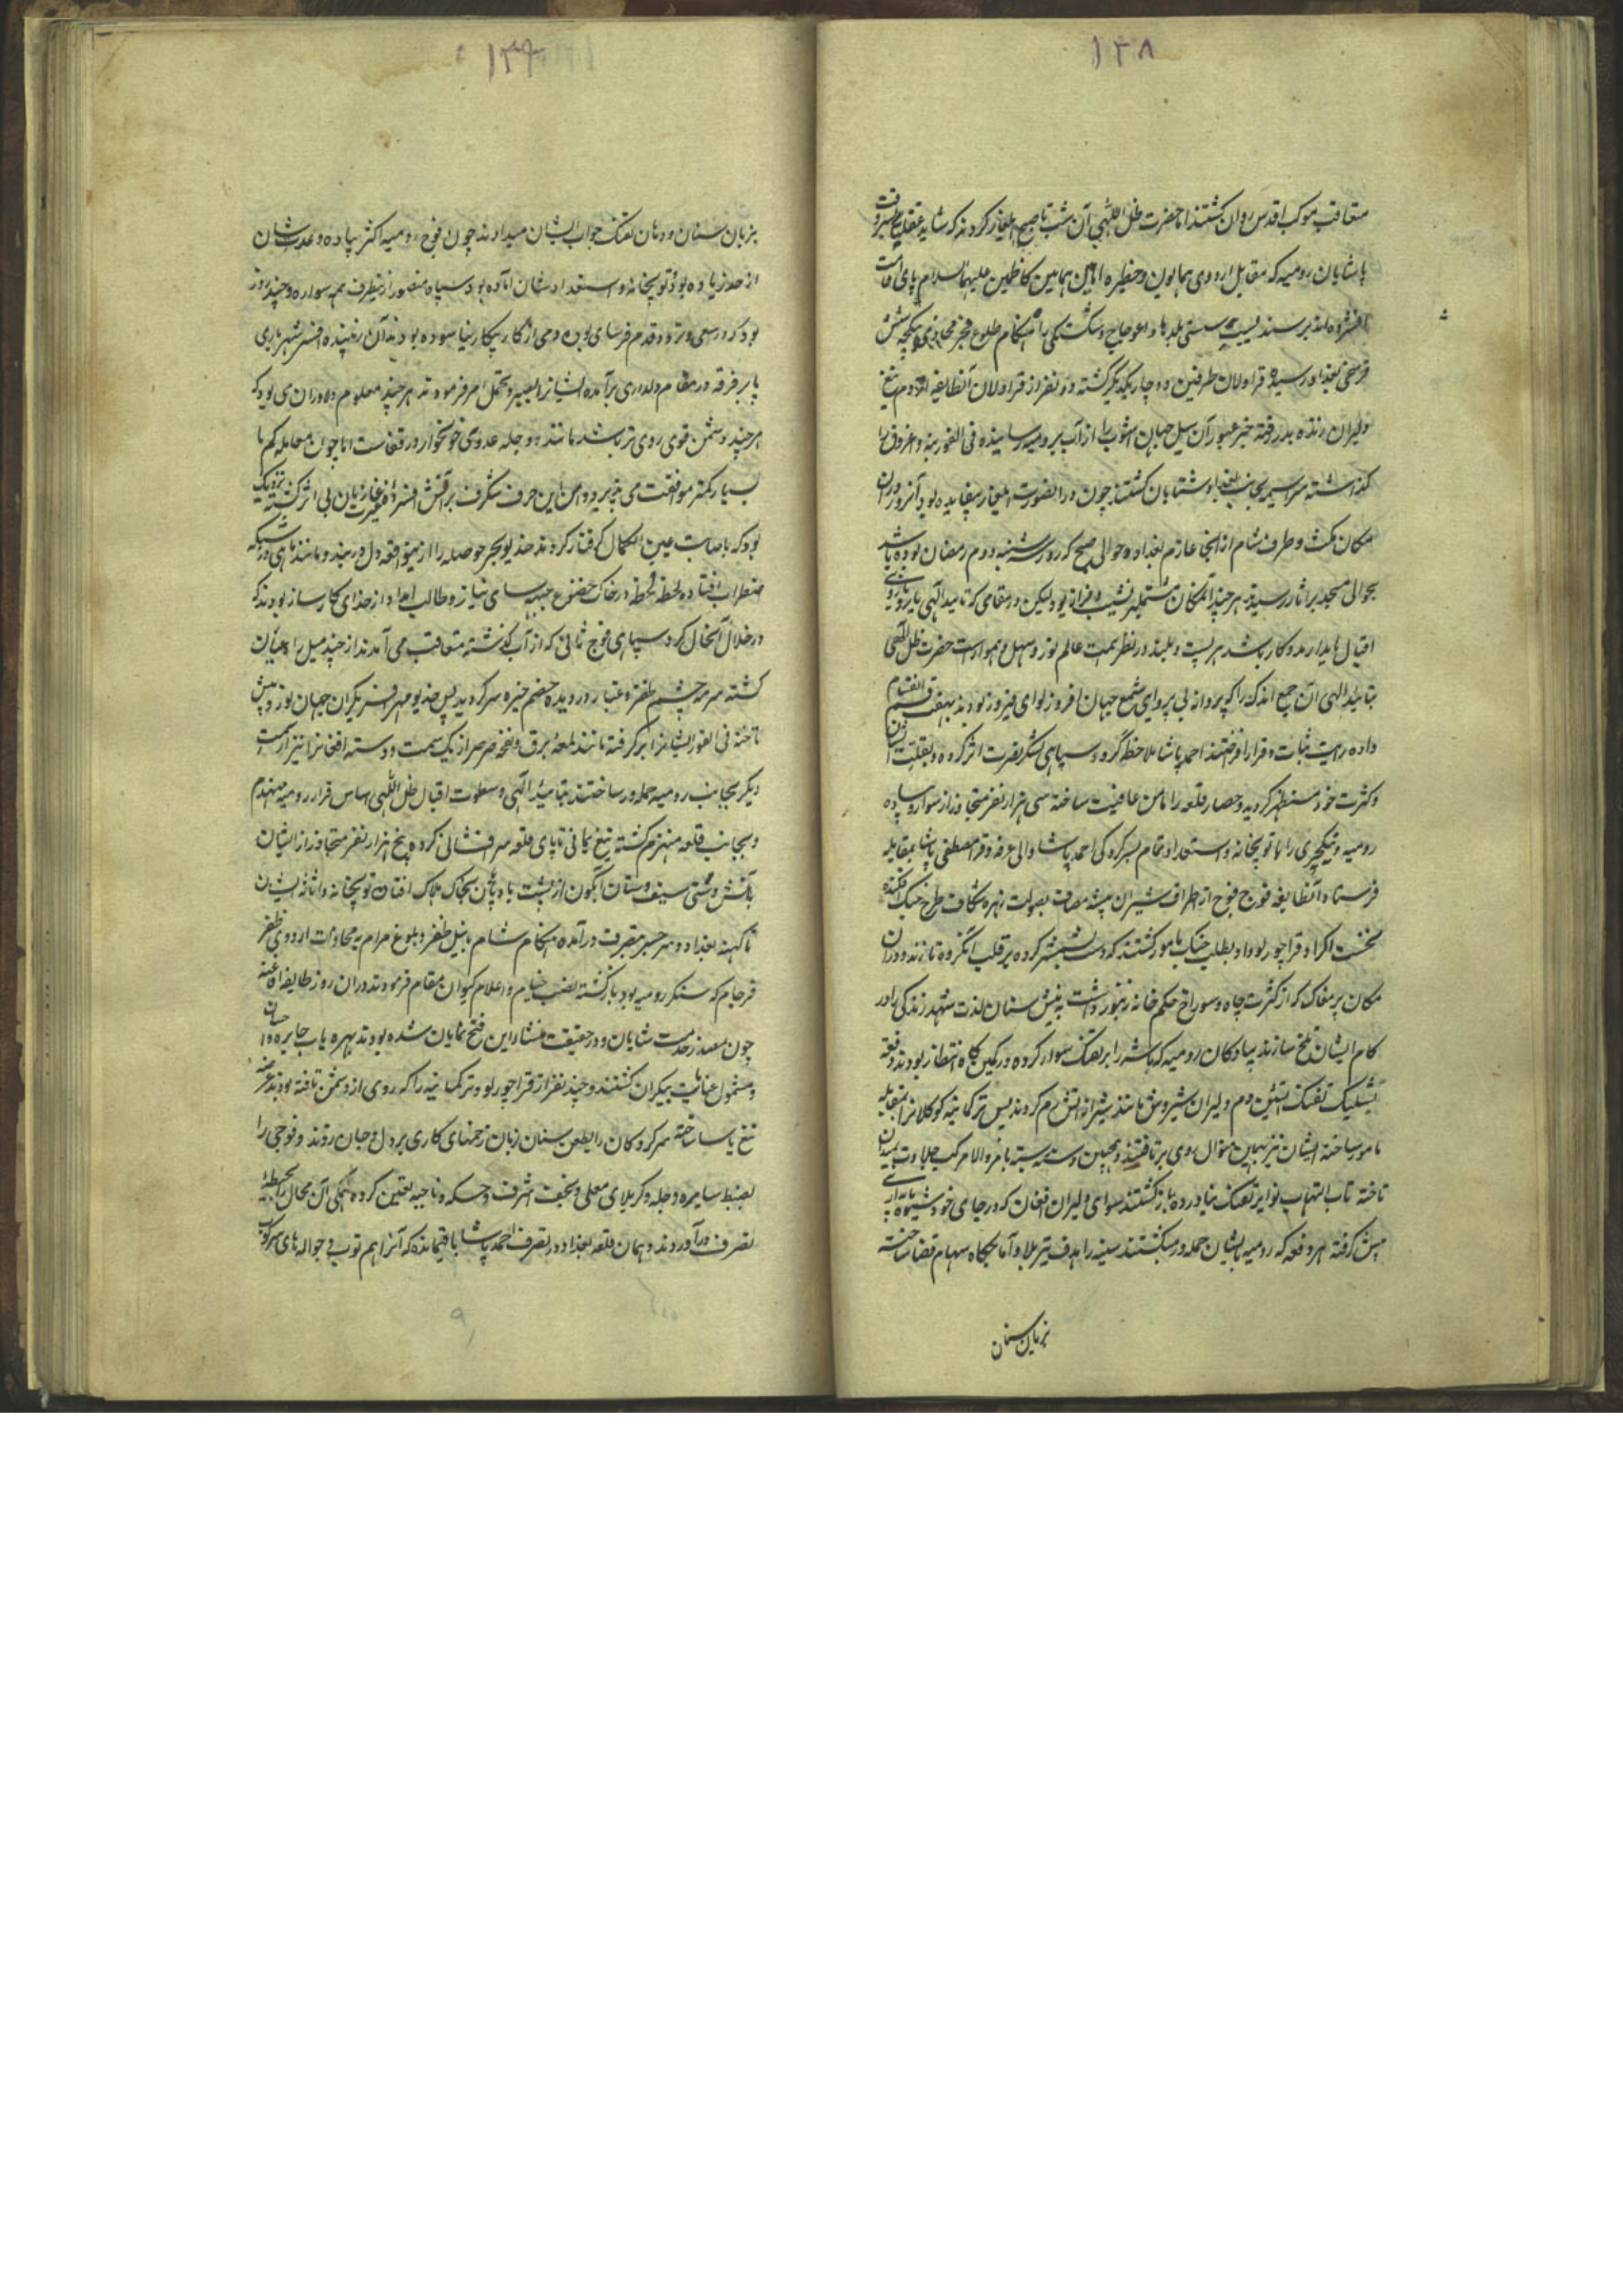 ۱۳۸
متعاقب موکب اقدس روان کشتند اما حضرت ظل اللهی آن شب تا صبح ایلغار کردند که شاید
پاشایان رومیه که مقابل اردوی همایون و حظیره امامین همامین کاظمین علیهما السلام پای اقامت
افشرده اند برسند بسبب سستی بلدها و اعوجاج و شکستگی راه هنکام طلوع فجر
فرسخی بغداد رسیده قراولان طرفین دوچار یکدیگر کشته دو نفر از قراولان آنطایفه از دم تیغ
دلیران زنده بدر رفته خبر عبور آن سیل جهان آشوب را از آب برومیه رسانیده فی الفور بنه و اغروق را
کذاشته سراسیمه بجانب بغداد شتابان کشتند چون در اینصورت ایلغار بیفایده بود آنروز در آن
مکان مکث و طرف شام از آنجا عازم بغداد و حوالی صبح که روز شنبه دوم رمضان بوده باشد
بحوالی مسجد براثا رسیدند هر چند آنمکان مشتمل بر نشیب و فراز بود لیکن در مقامی که تایید الهی یار و یاور
اقبال پایدار مددکار باشد هر پست و بلند در نظر همت عالم نورد سهل و هموار است حضرت ظل اللهی
بتایید الهی آن جمع اندک را که پروانه بی پروای شمع جهان افروز لوای فیروز بودند بهفت قسم انقسام
داده رایت ثبات و قرار افراختند احمد پاشا ملاحظه کرد و سپاهی لشکر نصرت اثر کرده و بقلت ایشان
و کثرت خود مستظهر کردیده حصار قلعه را مامن عافیت ساخته سی هزار نفر متجاوز از سوار و پیاده
رومیه و ینکچری را با توپخانه و استعداد تمام بسرکردکی احمد پاشا والی عرفه و قرا مصطفی پاشا بمقابله
فرستاد آنطایفه فوج فوج از اطراف شیران بیشه مصاف بصولت زهره شکاف طرح جنک افکنده
نخست اکراد قراچورلو داوطلب جنک مامور کشتند که دست بشمشیر کرده بر قلب آنکروه تازند و در آن
مکان پر مغاک که از کثرت چاه و سوراخ حکم خانه زنبور داشت بنیش سنان لذت شهد زندکی را در
کام ایشان تلخ سازند پیادکان رومیه که پاشنه را بر تفنک سوار کرده در کمین کاه انتظار بودند دفعة
بشلیک تفنک آتشین دم دلیران شیروش مانند شیر از آتش رم کردند پس ترکمانیه کوکلان را بمقابله
مامور ساخته ایشان نیز بهمین منوال روی برتافتند و همچنین دسته بسته بامر والا مرکب جلادت بمیدان
تاخته تاب التهاب نوایر تفنک نیاورده باز کشتند سوای دلیران افغان که در جای خود شیوه پایداری
پیش کرفته هر دفعه که رومیه بایشان حمله ور میکشتند سینه را هدف تیر بلا و آماجکاه سهام قضا ساخته
بزبان سنان
۱۳۹
بزبان سنان و دهان تفنک جواب ایشان میدادند چون فوج رومیه اکثر پیاده و عدت شان
از حد زیاده بود و توپخانه و استعداد شان آماده بود و سپاه منصور از اینطرف همه سواره و چند روز
بود که در سعی و تردد قدم فرسای بوده دمی از کار پیکار نیاسوده بودند آن زیبنده افسر شهریاری
پا بر فرقه در مقام دلداری برآمده ایشانرا بصبر و تحمل امر فرمودند هر چند معلوم دلاوران می بود که
هر چند دشمن قوی روی تر باشد مانند دجله عدوی خونخوار در قفاست اما چون معامله کم با
بسیار کمتر موافقت می پذیرد و امن این حرف شکرف بر آتش افسرده غیرت غازیان بی اثر کشته نزدیک
بود که باصابت عین الکمال کرفتار کردند خدیو بحر حوصله را از اینواقعه دل دربند و مانند ماهی در شبکه
اضطراب افتاده لحظه لحظه در خاک خضوع جبهه سای نیاز و طالب امداد از خدای کارساز بودند که
در خلال آنحال کرد سپاهی فوج ثانی که از آب کذشته متعاقب می آمدند از چند میل راه عیان
کشته سرمه چشم ظفر و غبار در دیده خصم خیره سر کردید پس خدیو مهر افسر یکران جهان نورد پیش
تاخته فی الفور ایشانرا بر کرفته مانند لمعه برق و نفخه صرصر از یک سمت و دسته افغانرا نیز از سمت
دیکر بجانب رومیه حمله ور ساختند بتایید الهی و سطوت اقبال ظل اللهی اساس قرار رومیه منهدم
و بجانب قلعه منهزم کشته تیغ یمانی تا پای قلعه سرافشانی کرده پنج هزار نفر متجاوز از ایشان
بآتش دستی سیف و سنان آبکون از پشت بادپایان بخاک هلاک افتاده توپخانه و اثاثه ایشان
تا کهنه بغداد و سر جسر بتصرف درآمده هنکام شام بنیل ظفر و بلوغ مرام بمحاذات اردوی ظفر
فرجام که سنکر رومیه بود باز کشته بنصب خیام و اعلام کیوان مقام فرمودند در آن روز طایفه افاغنه
چون مصدر خدمت شایان و در حقیقت منشاء این فتح نمایان شده بودند بهره یاب جایزه و احسان
و مشمول عنایت بیکران کشتند و چند نفر از قراچورلو و ترکمانیه را که روی از دشمن تافته بودند عرضه
تیغ یاسا ساخته سرکردکان را بطعن سنان زبان زخمهای کاری بر دل و جان زدند و فوجی را
بضبط سامره و حله و کربلای معلی و نجف اشرف و حسکه و ناحیه تعیین کرده همکی آن محال را بحیطه
تصرف درآوردند و همان قلعه بغداد در تصرف احمد پاشا باقیمانده که آنرا هم توپ و حواله های سرکوب